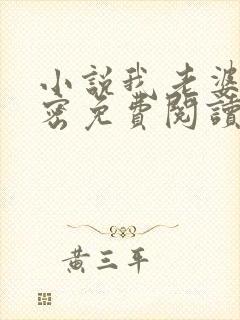 小說我老婆
密免費閱讀
黃三平